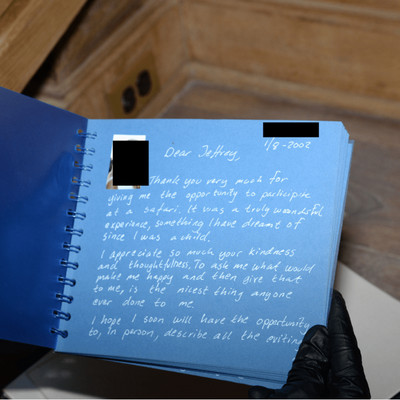 1/8-2002
Dear Jeffrey,
Thank you very much for
giving me the opportunity to participate
at a safari. It was a truly wounderful
experience, something I have dreamt of
since I was a child.
I appreciate so much your kindness
and thoughtfullness. To ask me what would
make me happy and then give that
to me, is the nicest thing anyone
ever done to me.
I hope I soon will have the opportunity
to, in person, describe all the exiting